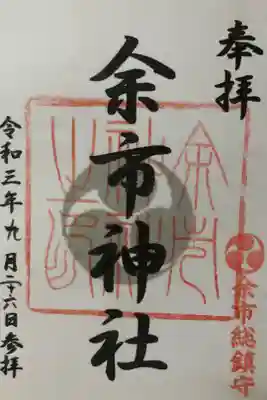 奉拝
余市総鎮守
余市神社
令和三年九月二十六日参拝